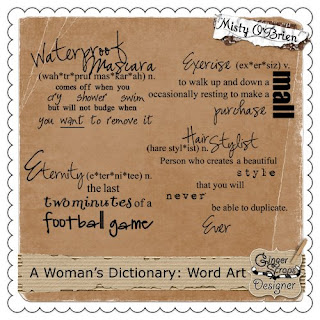 Misty O'Brien
Waterproof
Mascara
(wah*tr*pruf mas*kar*ah) n.
comes off when you
cry shower swim
but will not budge when
you want to remove it
Exercise (ex*er*siz) v.
to walk up and down a
mall
occasionally resting to make a
purchase
Hair Stylist
(hare styl*ist) n.
Person who creates a beautiful
style
that you will
never
be able to duplicate.
Ever
Eternity (e*ter*ni*tee) n.
the last
two minutes of a
football game
A Woman's Dictionary: Word Art
Ginger
Scraps
Designer